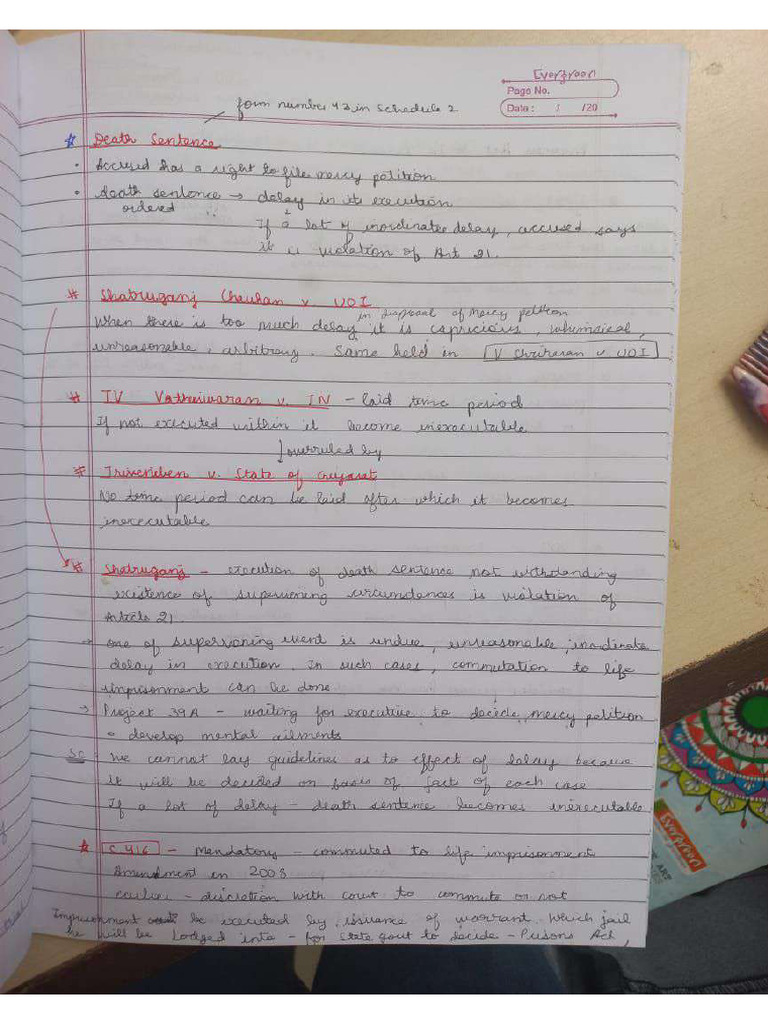 Evergreen
Page No.
Date: /20
form number 42 in Schedule 2
Death Sentence
• Accused has a right to file mercy petition
• death sentence → delay in its execution
ordered
If a lot of inordinate delay, accused says
it is violation of Art 21.
* Shatruganj Chauhan v UOI
in disposal of Mercy petition
When there is too much delay it is capricious, whimsical,
unreasonable, arbitrary. Same held in V Shriharan v UOI
* TV Vatheeswaran v. TN - laid time period
If not executed within it become inexecutable
overruled by
* Triveniben v. State of Gujarat
No time period can be laid after which it becomes
inexecutable
* Shatruganj - execution of death sentence not withstanding
existence of supervening circumstances is violation of
Article 21.
→ One of supervening event is undue, unreasonable, inordinate
delay in execution. In such cases, commutation to life
imprisonment can be done
→ Project 39A - waiting for executive to decide mercy petition
develop mental ailments
SC We cannot lay guidelines as to effect of delay because
it will be decided on basis of fact of each case
If a lot of delay - death sentence becomes inexecutable
* S.416 - Mandatory - commuted to life imprisonment
Amendment in 2003
earlier - discretion with court to commute or not
Imprisonment be executed by issuance of warrant. Which jail
he will be lodged into - for State govt to decide - Prisons Act,
Evergreen
ART